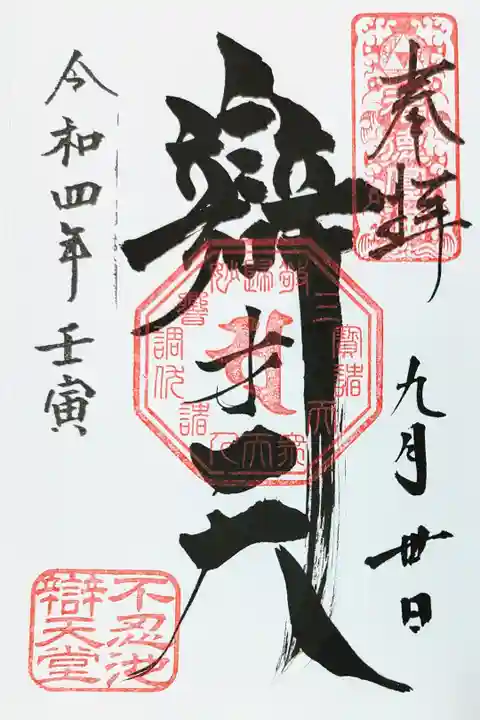 奉拝
九月廿日
辯才天
令和四年 壬寅
不忍池
辯天堂